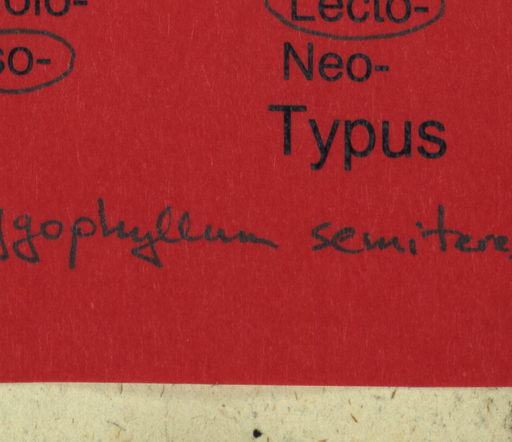 olo- Lecto-
so- Neo-
Typus
ygophyllum semiteres